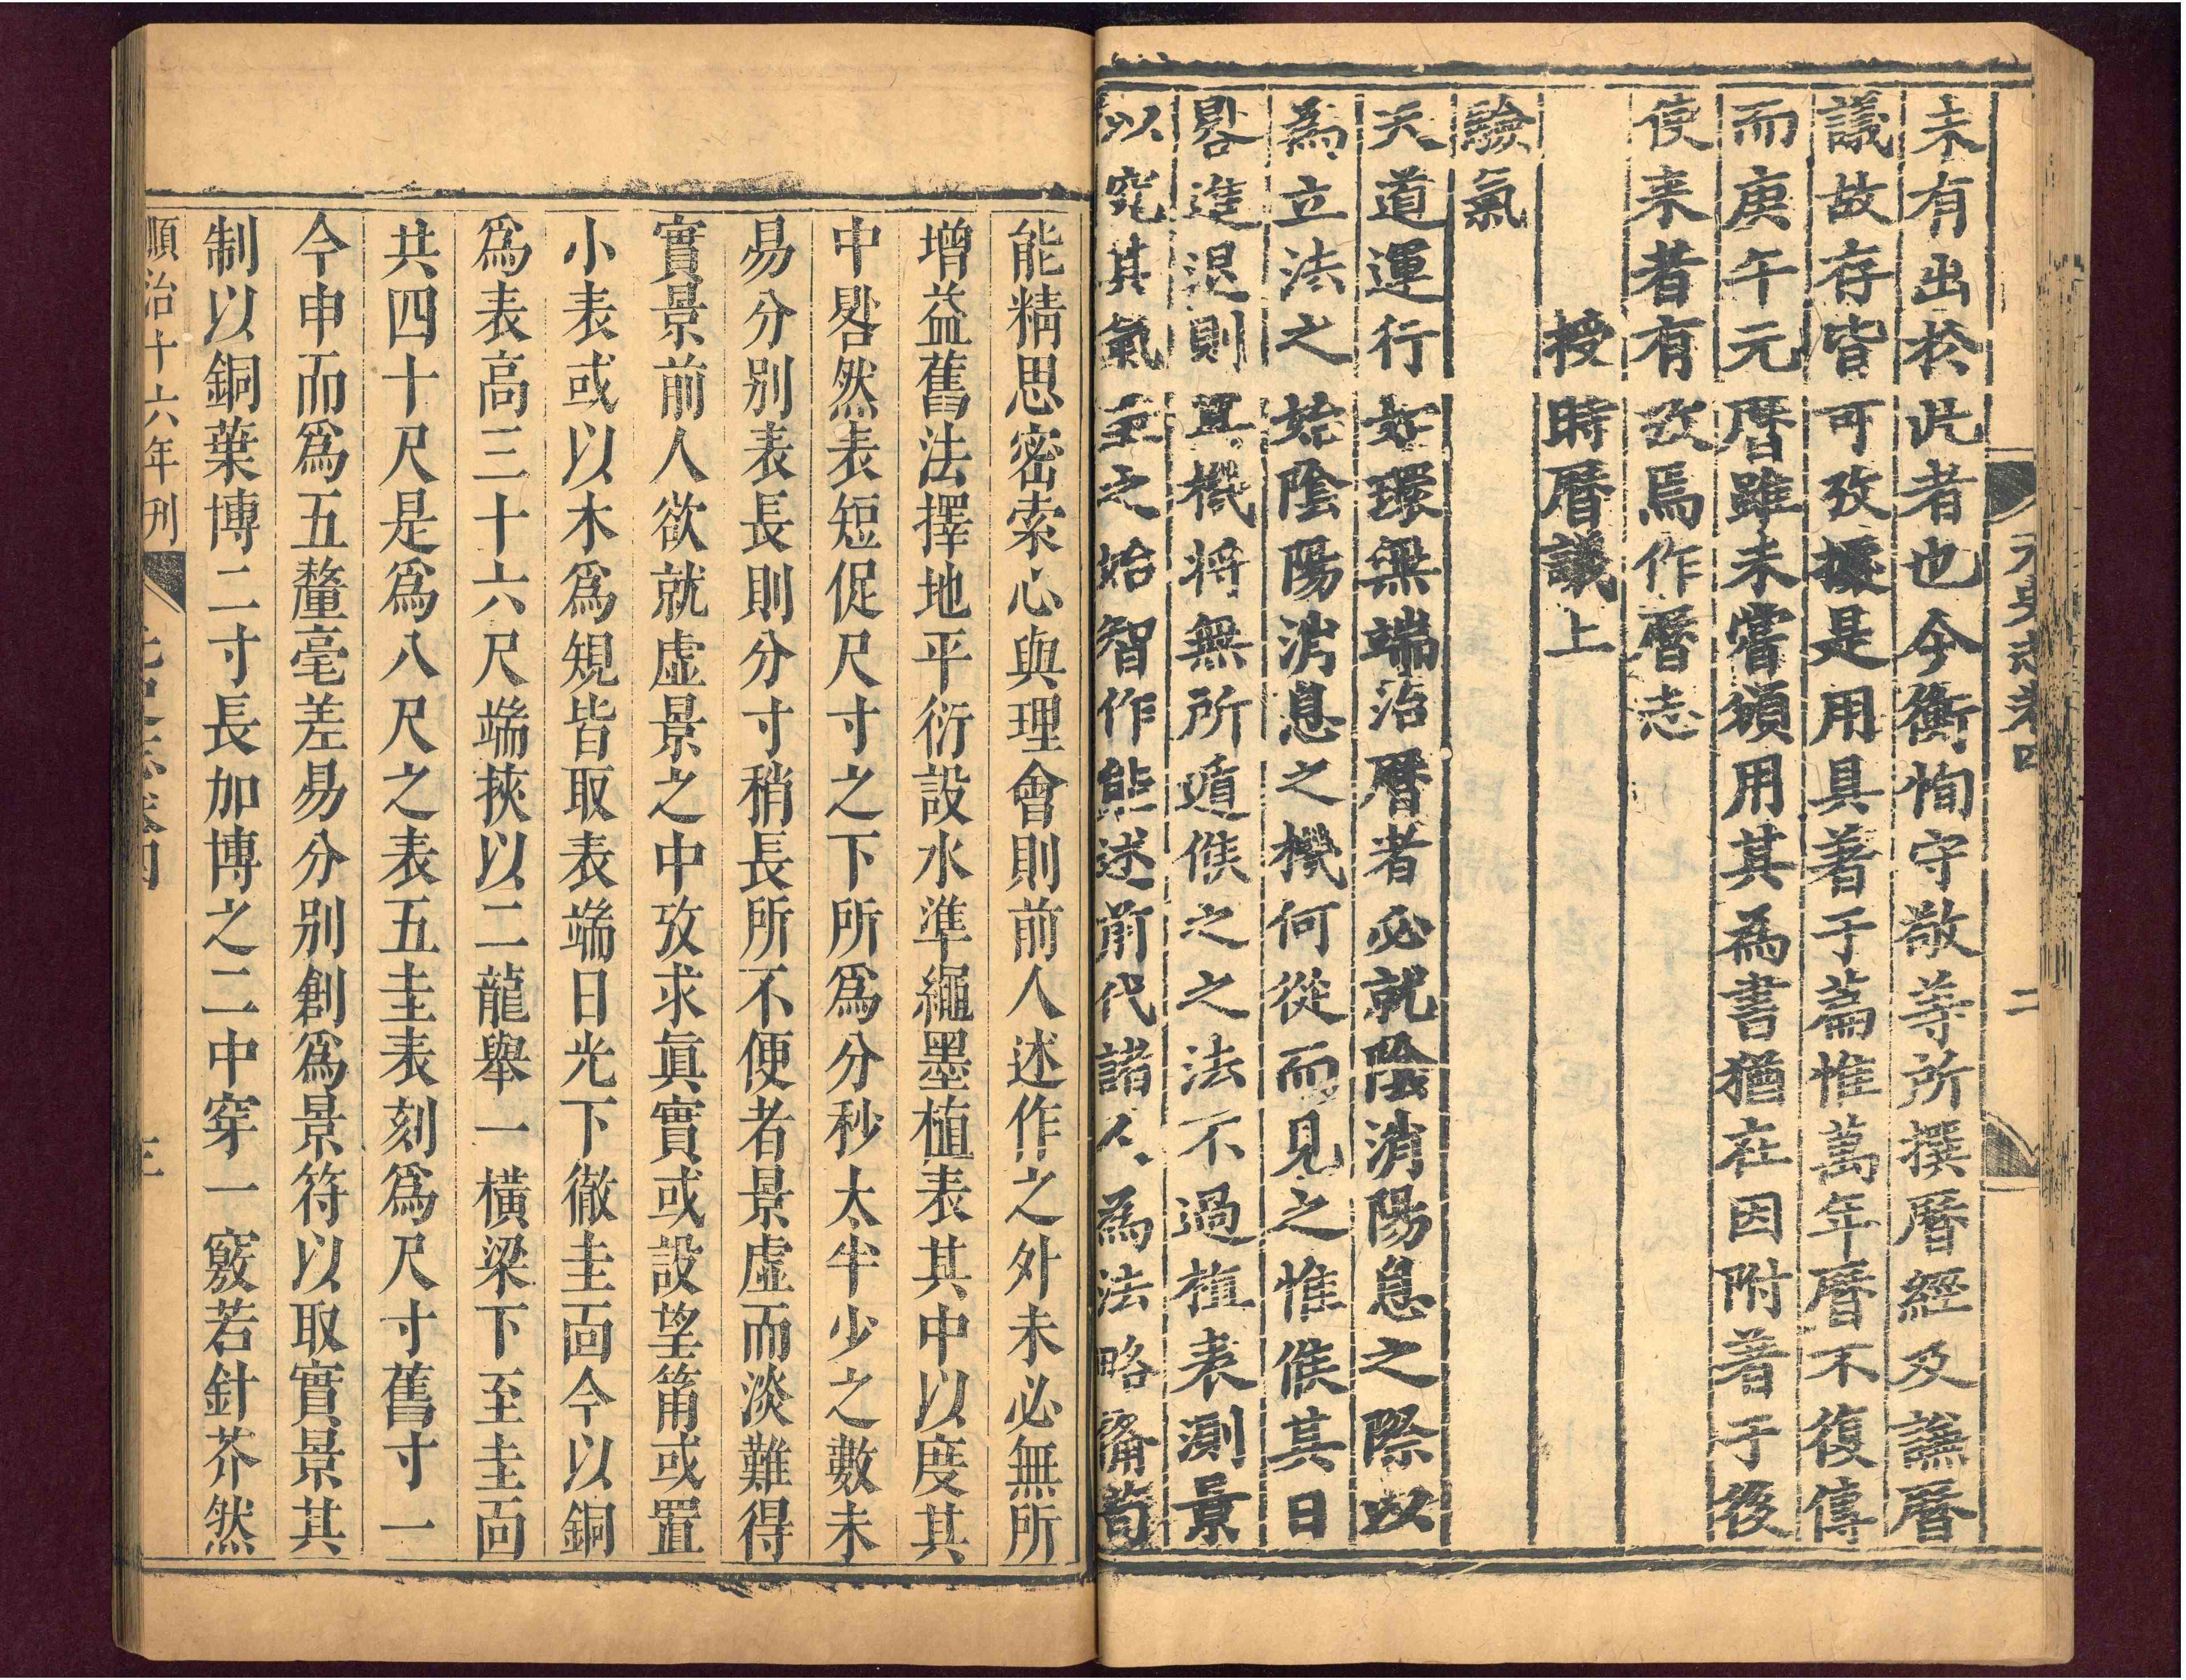 元史志卷四
二
未有出於此者也今衡恂守敬等所撰曆經及謙曆
議故存皆可攷據是用具著于篇惟萬年曆不復傳
而庚午元曆雖未嘗頒用其為書猶在因附著于後
使来者有攷焉作曆志
授時曆議上
驗氣
天道運行如環無端治曆者必就陰消陽息之際以
為立法之始陰陽消息之機何從而見之惟候其日
晷進退則其機将無所遁候之之法不過植表測景
以究其氣至之始智作能述前代諸人為法略備苟
能精思密索心與理會則前人述作之外未必無所
增益舊法擇地平衍設水準繩墨植表其中以度其
中晷然表短促尺寸之下所爲分秒太半少之數未
易分別表長則分寸稍長所不便者景虛而淡難得
實景前人欲就虛景之中攷求眞實或設望筩或置
小表或以木爲規皆取表端日光下徹圭面今以銅
爲表高三十六尺端挾以二龍舉一橫梁下至圭面
共四十尺是爲八尺之表五圭表刻爲尺寸舊寸一
今申而爲五釐毫差易分别創爲景符以取實景其
制以銅葉博二寸長加博之二中穿一竅若針芥然
順治十六年刊
元史志卷四
三